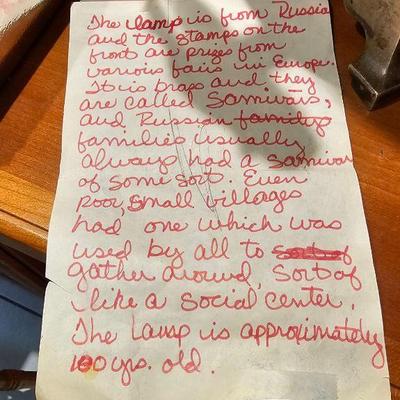 The lamp is from Russia
and the stamps on the
front are prizes from
various fairs in Europe.
It is brass and they
are called Samivars,
and Russian familys
families usually
always had a samivar
of some sort. Even
poor, small villages
had one which was
used by all to sort of
gather around, Sort of
like a social center.
The lamp is approximately
100 yrs. old.